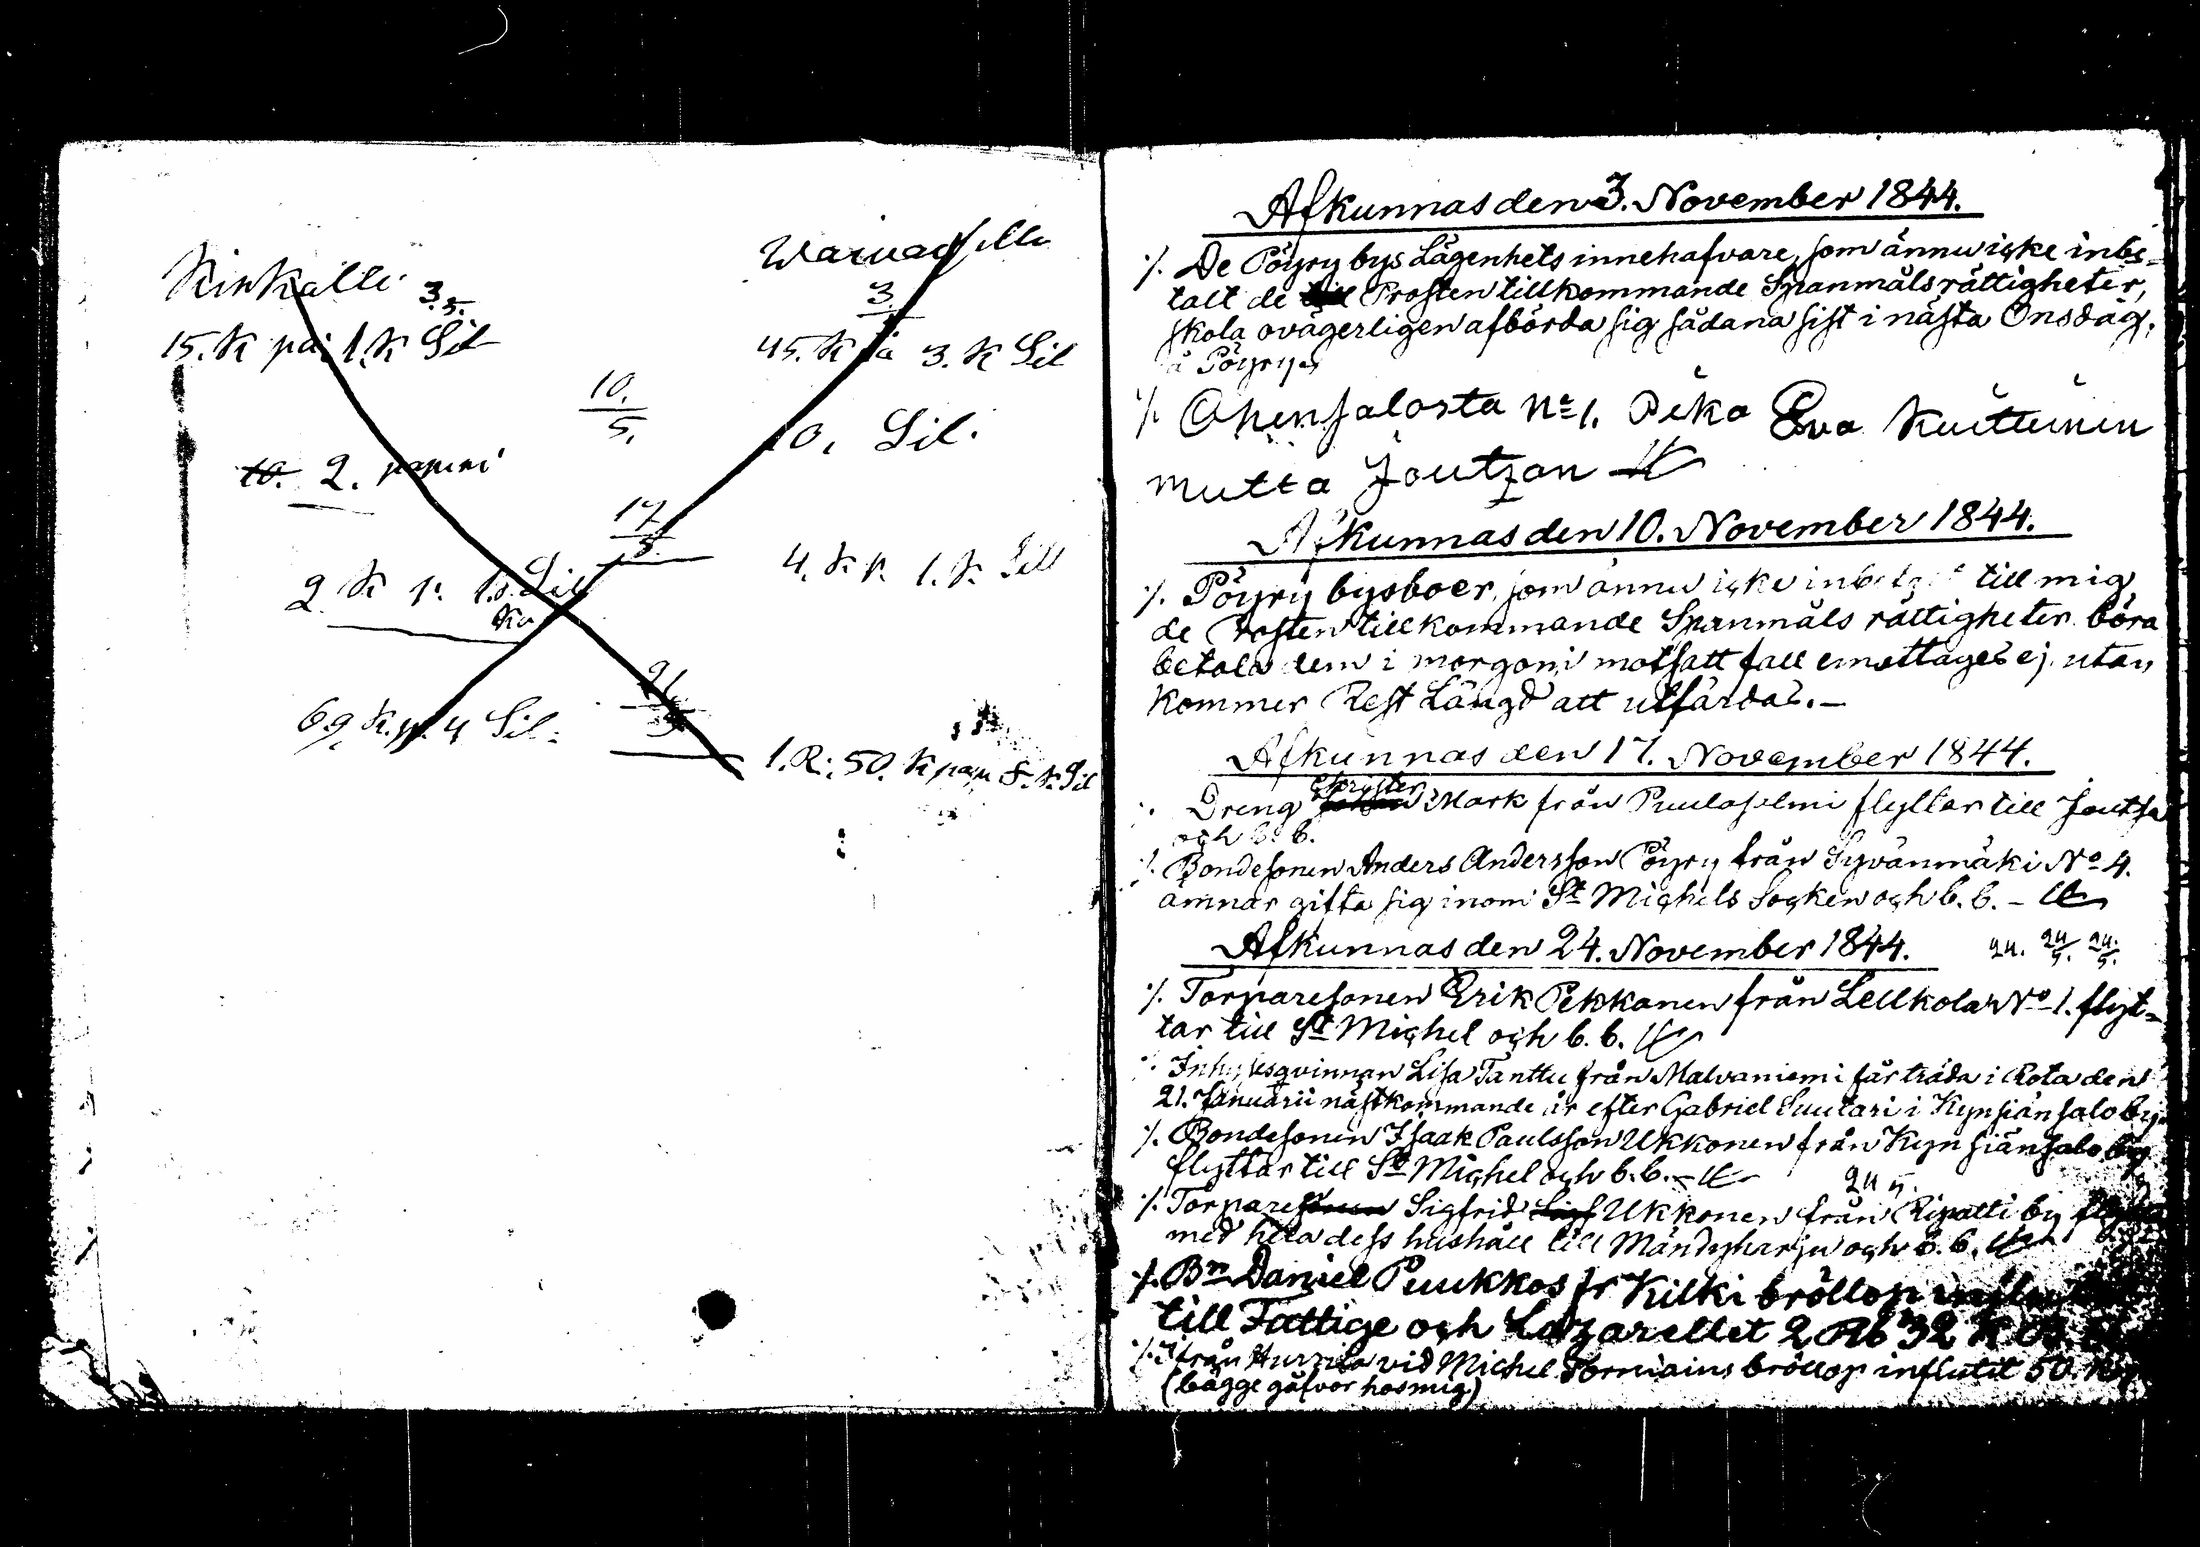 Kirkalle Waivasille
3. 5. 3
15. K pa: 1. K Sil 45. K pa 3. K Sil
10. 5. 10. Sil.
10. 2. paperi
17 5.
2 K p. 1. S. Sil 4. K p. 1. K Sill
Ko
24 5
69. K. p. 4 Sil.
1. R: 50. K pap 8. K Sil
Afkunnas den 3. November 1844.
·/. De Pöyry bys Lägenhets innehafvare, som ännu icke inbe=
talt de till Prosten tillkommande Spanmåls rättigheter,
skola ovägerligen afbörda sig sådana sist i nästa Onsdag,
å Pöyry
·/. Ohensalosta No 1. Pika Eva Kuittinen
mutta Joutzan
Afkunnas den 10. November 1844.
·/. Pöyry bysboer, som ännu icke inbetalt till mig
de Prosten tillkommande Spanmåls rättigheter böra
betala dem i morgon i motsatt fall emottages ej, utan
kommer Rest Längd att utfärdas.—
Afkunnas den 17. November 1844.
Christer
Dreng Johan Mark från Puulaselmi flyttar till Joutsa
och b. b.
·/. Bondesonen Anders Andersson Pöyry från Syvänmäki No 4.
ämnar gifta sig inom St Michels Socken och b. b. –
Afkunnas den 24. November 1844. 24. 24/5. 24./5.
·/. Torparesonen Erik Pekkanen från Lellkola No 1. flyt=
tar till St Michel och b. b.
·/. Inhysesqvinnan Lisa Tanttu från Malvaniemi får träda i Rota den
21. Januarii nästkommande år efter Gabriel Suutari i Kynsiänsalo by.
·/. Bondesonen Isaak Paulsson Ukkonen från Kynsiänsalo by
flyttar till St Michel och b. b. –
24 5.
·/. Torparesonen Sigfrid Sigf Ukkonen från Ripatti by
med hela dess hushåll till Mändyharju och b. b.
·/. Bn Daniel Puukkos fr Kilki bröllop
till Fattige och Lazarettet 2 Rb 32 K
·/. från Hurula vid Michel bröllop influtit 50. Kop
(bägge gåfvor hos mig)